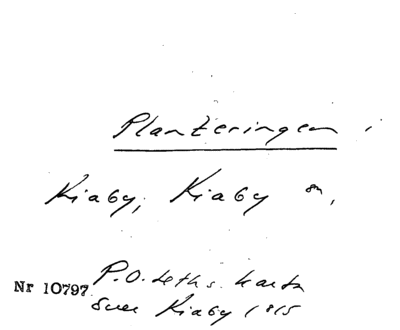 Planteringen i
Kiaby, Kiaby sn,
P.O. Leths karta
Nr 10797
över Kiaby 1815